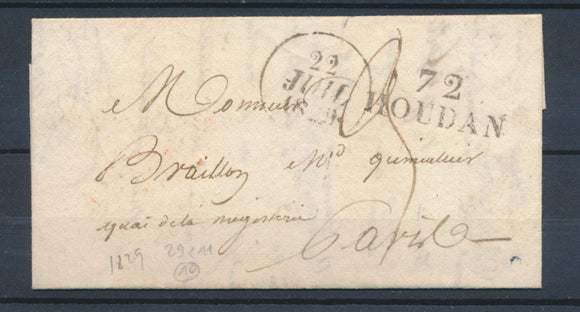 22
JUIL
1829
72
HOUDAN
Monsieur
Braillon Md
quai de la megisserie
Paris
1829 29x11
10